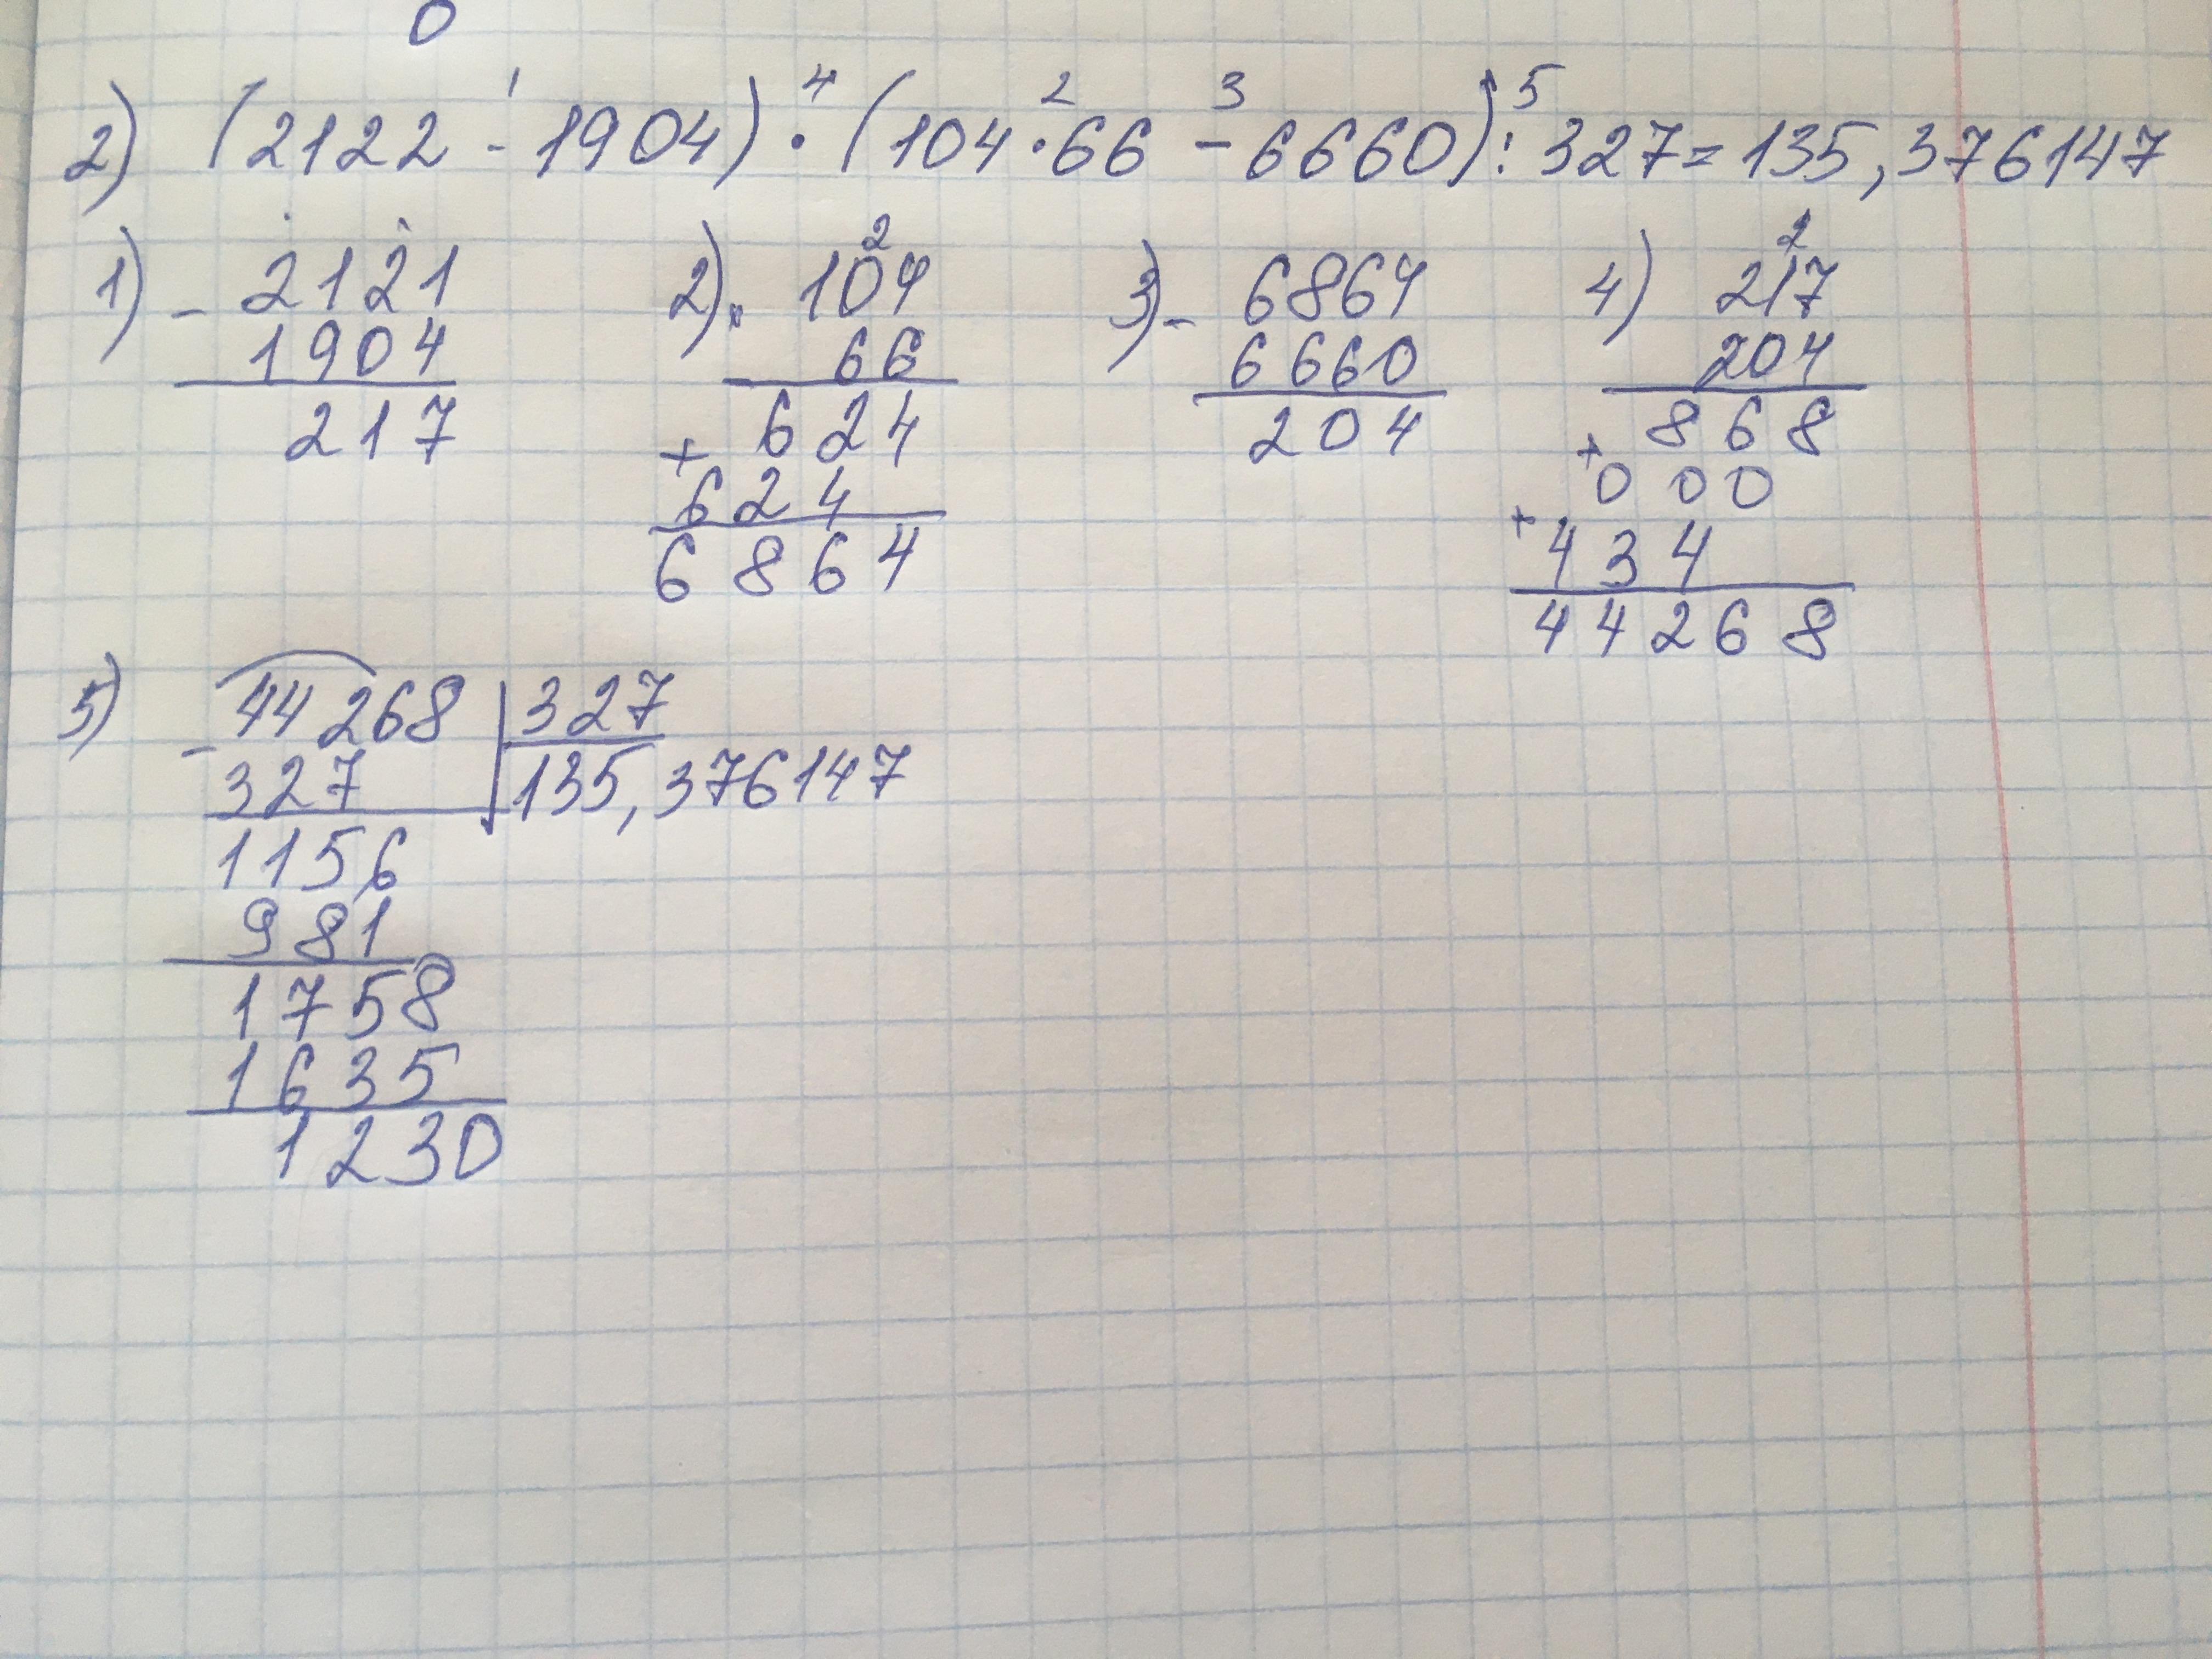 0
2) (2122 - 1904) · (104 · 66 - 6660) : 327 = 135,376147
1 4 2 3 5
1) - 2121
1904
217
2) · 104
2
66
+ 624
624
6864
3) - 6864
6660
204
4) 217
2
204
868
+ 000
+ 434
44268
5) - 44268 | 327
327 135,376147
1156
981
1758
1635
1230